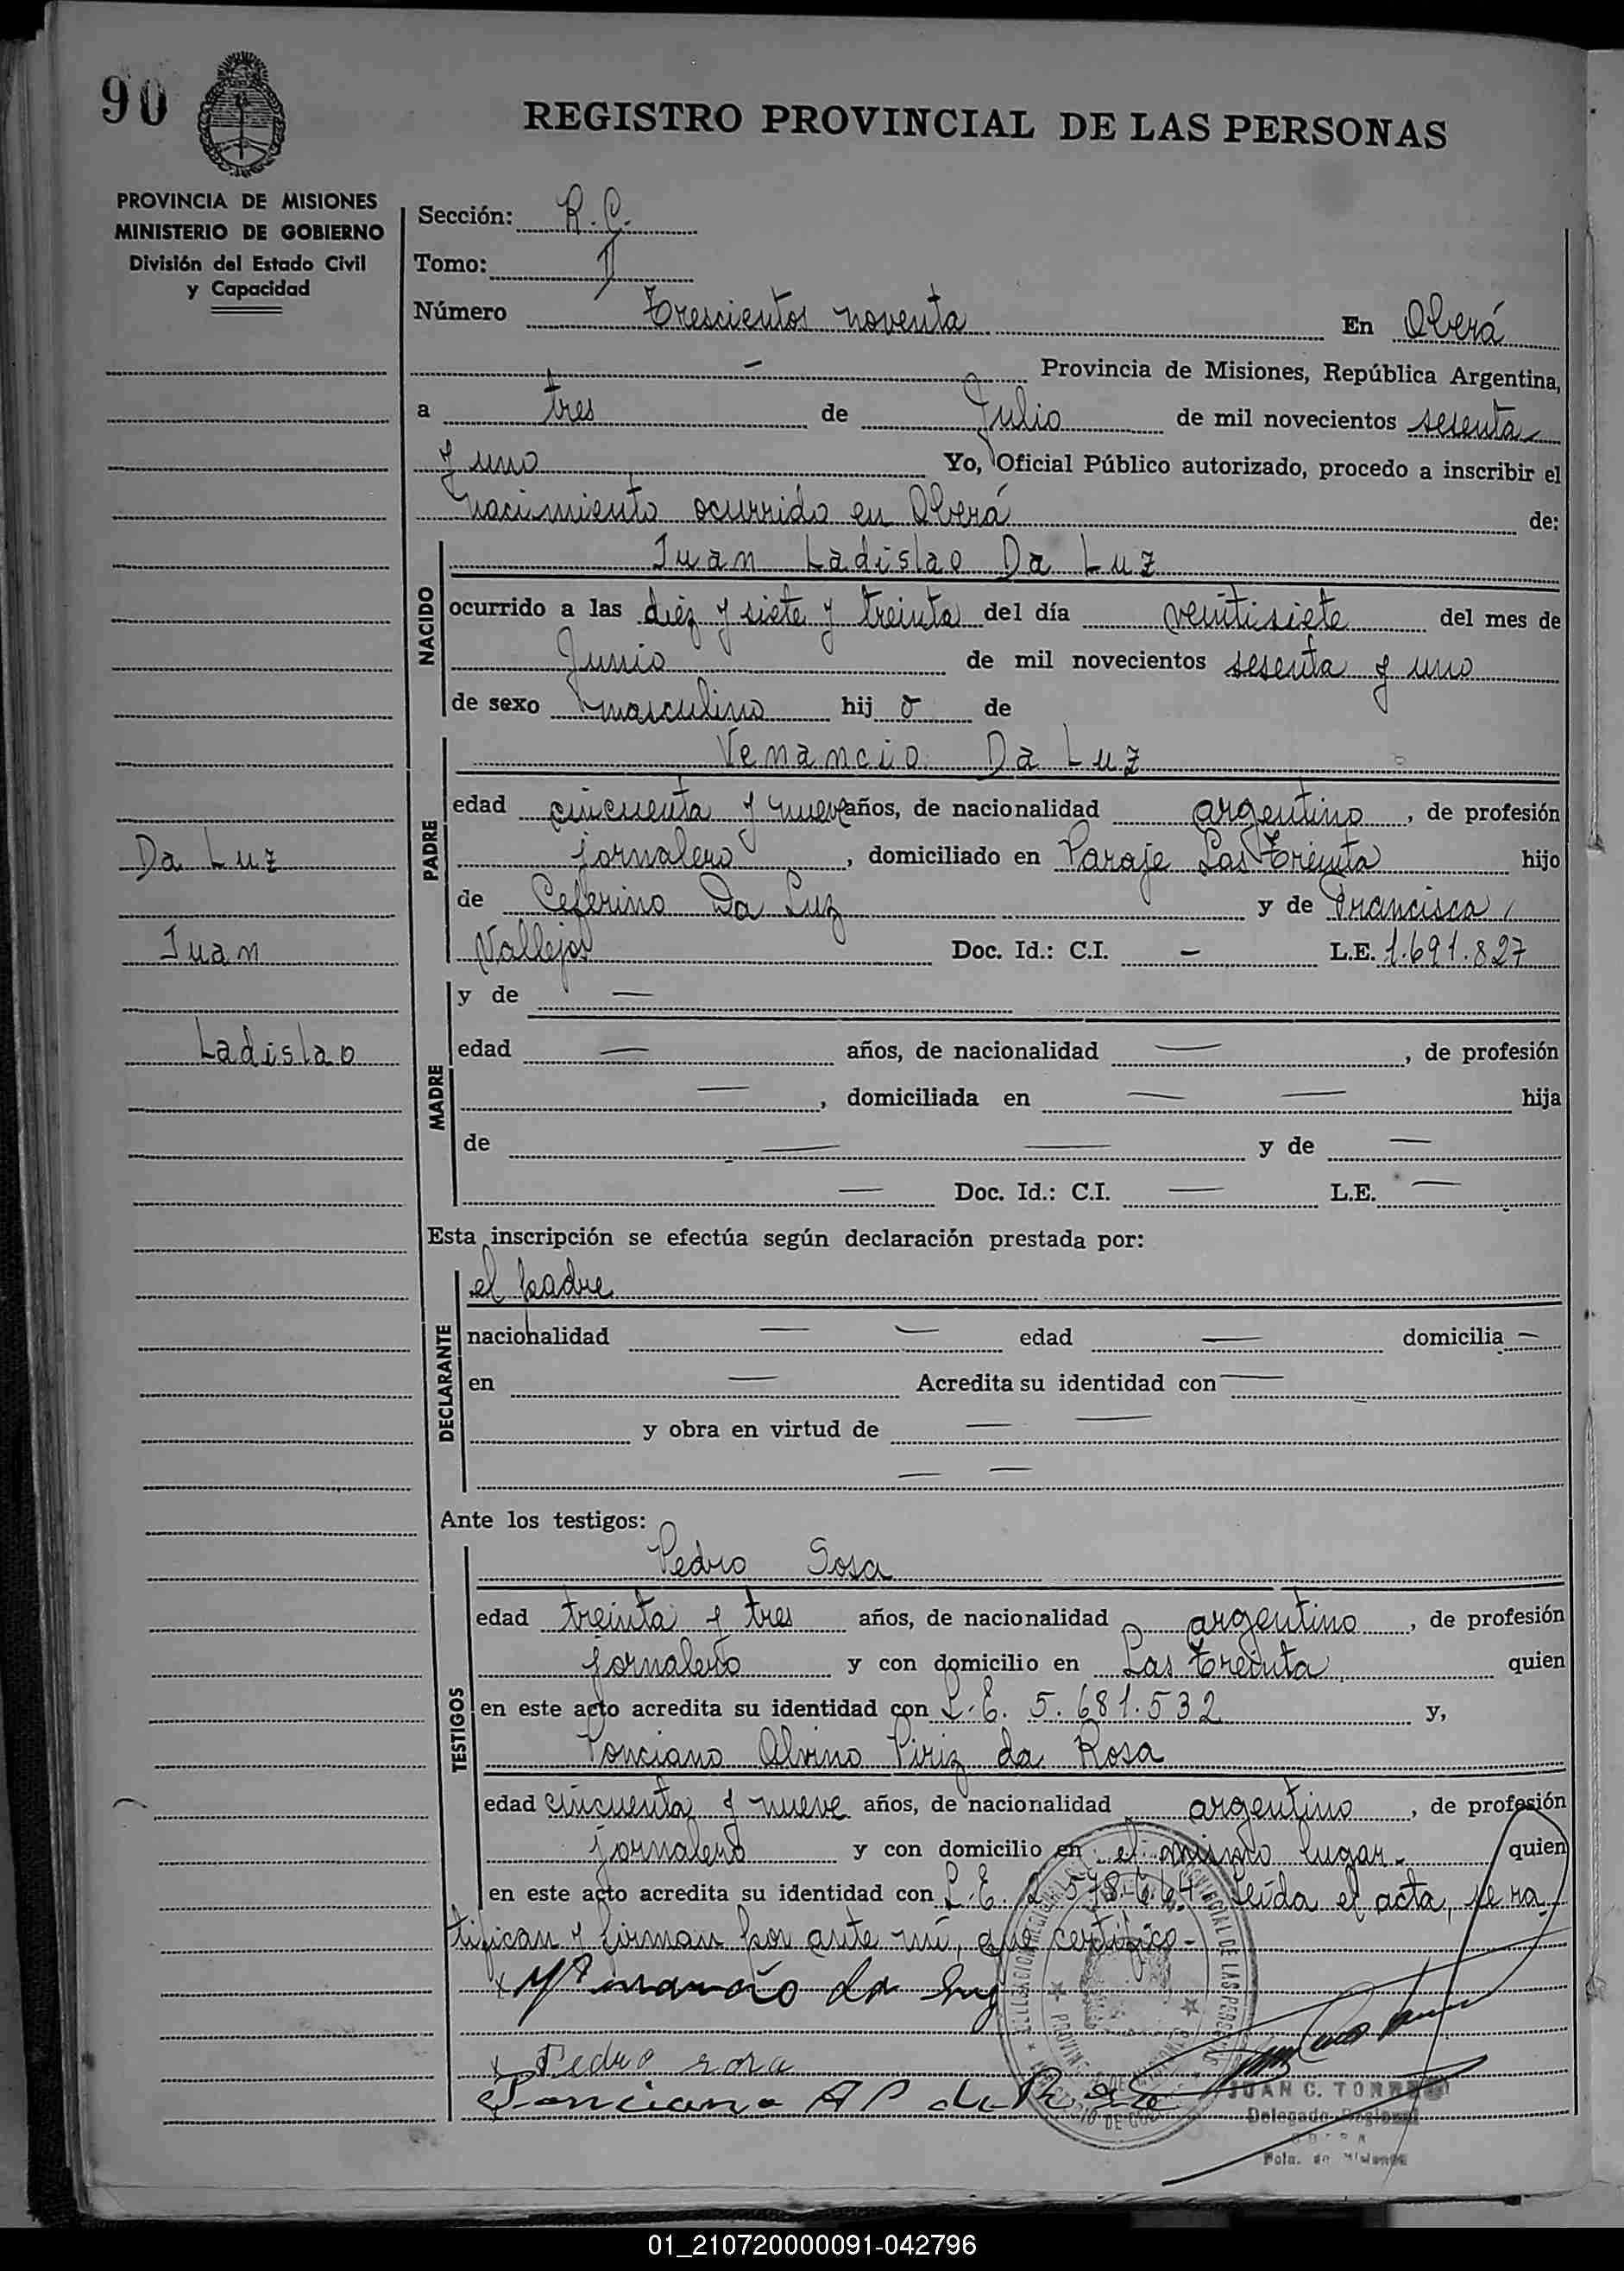 90
REGISTRO PROVINCIAL DE LAS PERSONAS
PROVINCIA DE MISIONES
MINISTERIO DE GOBIERNO
División del Estado Civil
y Capacidad
Sección: R. C.
Tomo: II
Número Trescientos noventa En Oberá
— Provincia de Misiones, República Argentina,
a tres de Julio de mil novecientos sesenta
y uno Yo, Oficial Público autorizado, procedo a inscribir el
nacimiento ocurrido en Oberá de:
NACIDO
Juan Ladislao Da Luz
ocurrido a las diez y siete y treinta del día veintisiete del mes de
Junio de mil novecientos sesenta y uno
de sexo masculino hij o de
PADRE
Venancio Da Luz
edad cincuenta y nueve años, de nacionalidad argentino, de profesión
jornalero, domiciliado en Paraje Las Treinta hijo
de Ceferino Da Luz y de Francisca
Vallejos Doc. Id.: C.I. — L.E. 1.691.827
Da Luz
Juan
Ladislao
MADRE
y de —
edad — años, de nacionalidad —, de profesión
—, domiciliada en — — hija
de — — y de —
— Doc. Id.: C.I. — L.E. —
Esta inscripción se efectúa según declaración prestada por:
DECLARANTE
el padre
nacionalidad — — edad — domicilia —
en — Acredita su identidad con —
y obra en virtud de — —
— —
Ante los testigos:
TESTIGOS
Pedro Sosa
edad treinta y tres años, de nacionalidad argentino, de profesión
jornalero y con domicilio en Las Treinta quien
en este acto acredita su identidad con L.E. 5.681.532 y,
Ponciano Alvino Piriz da Rosa
edad cincuenta y nueve años, de nacionalidad argentino, de profesión
jornalero y con domicilio en el mismo lugar.- quien
en este acto acredita su identidad con L.E. Leída el acta, se ra
tifican y firman por ante mí, que certifico.-
da Luz
Pedro sosa
Ponciano A P da Rosa
JUAN C. TORRES
Delegado Regional
OBERA
Pcia. de Misiones
01_210720000091-042796